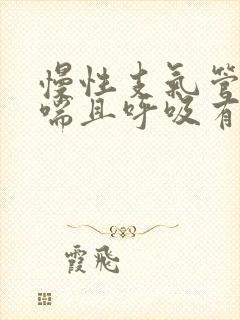 慢性支气管
喘且呼吸有
霞飛